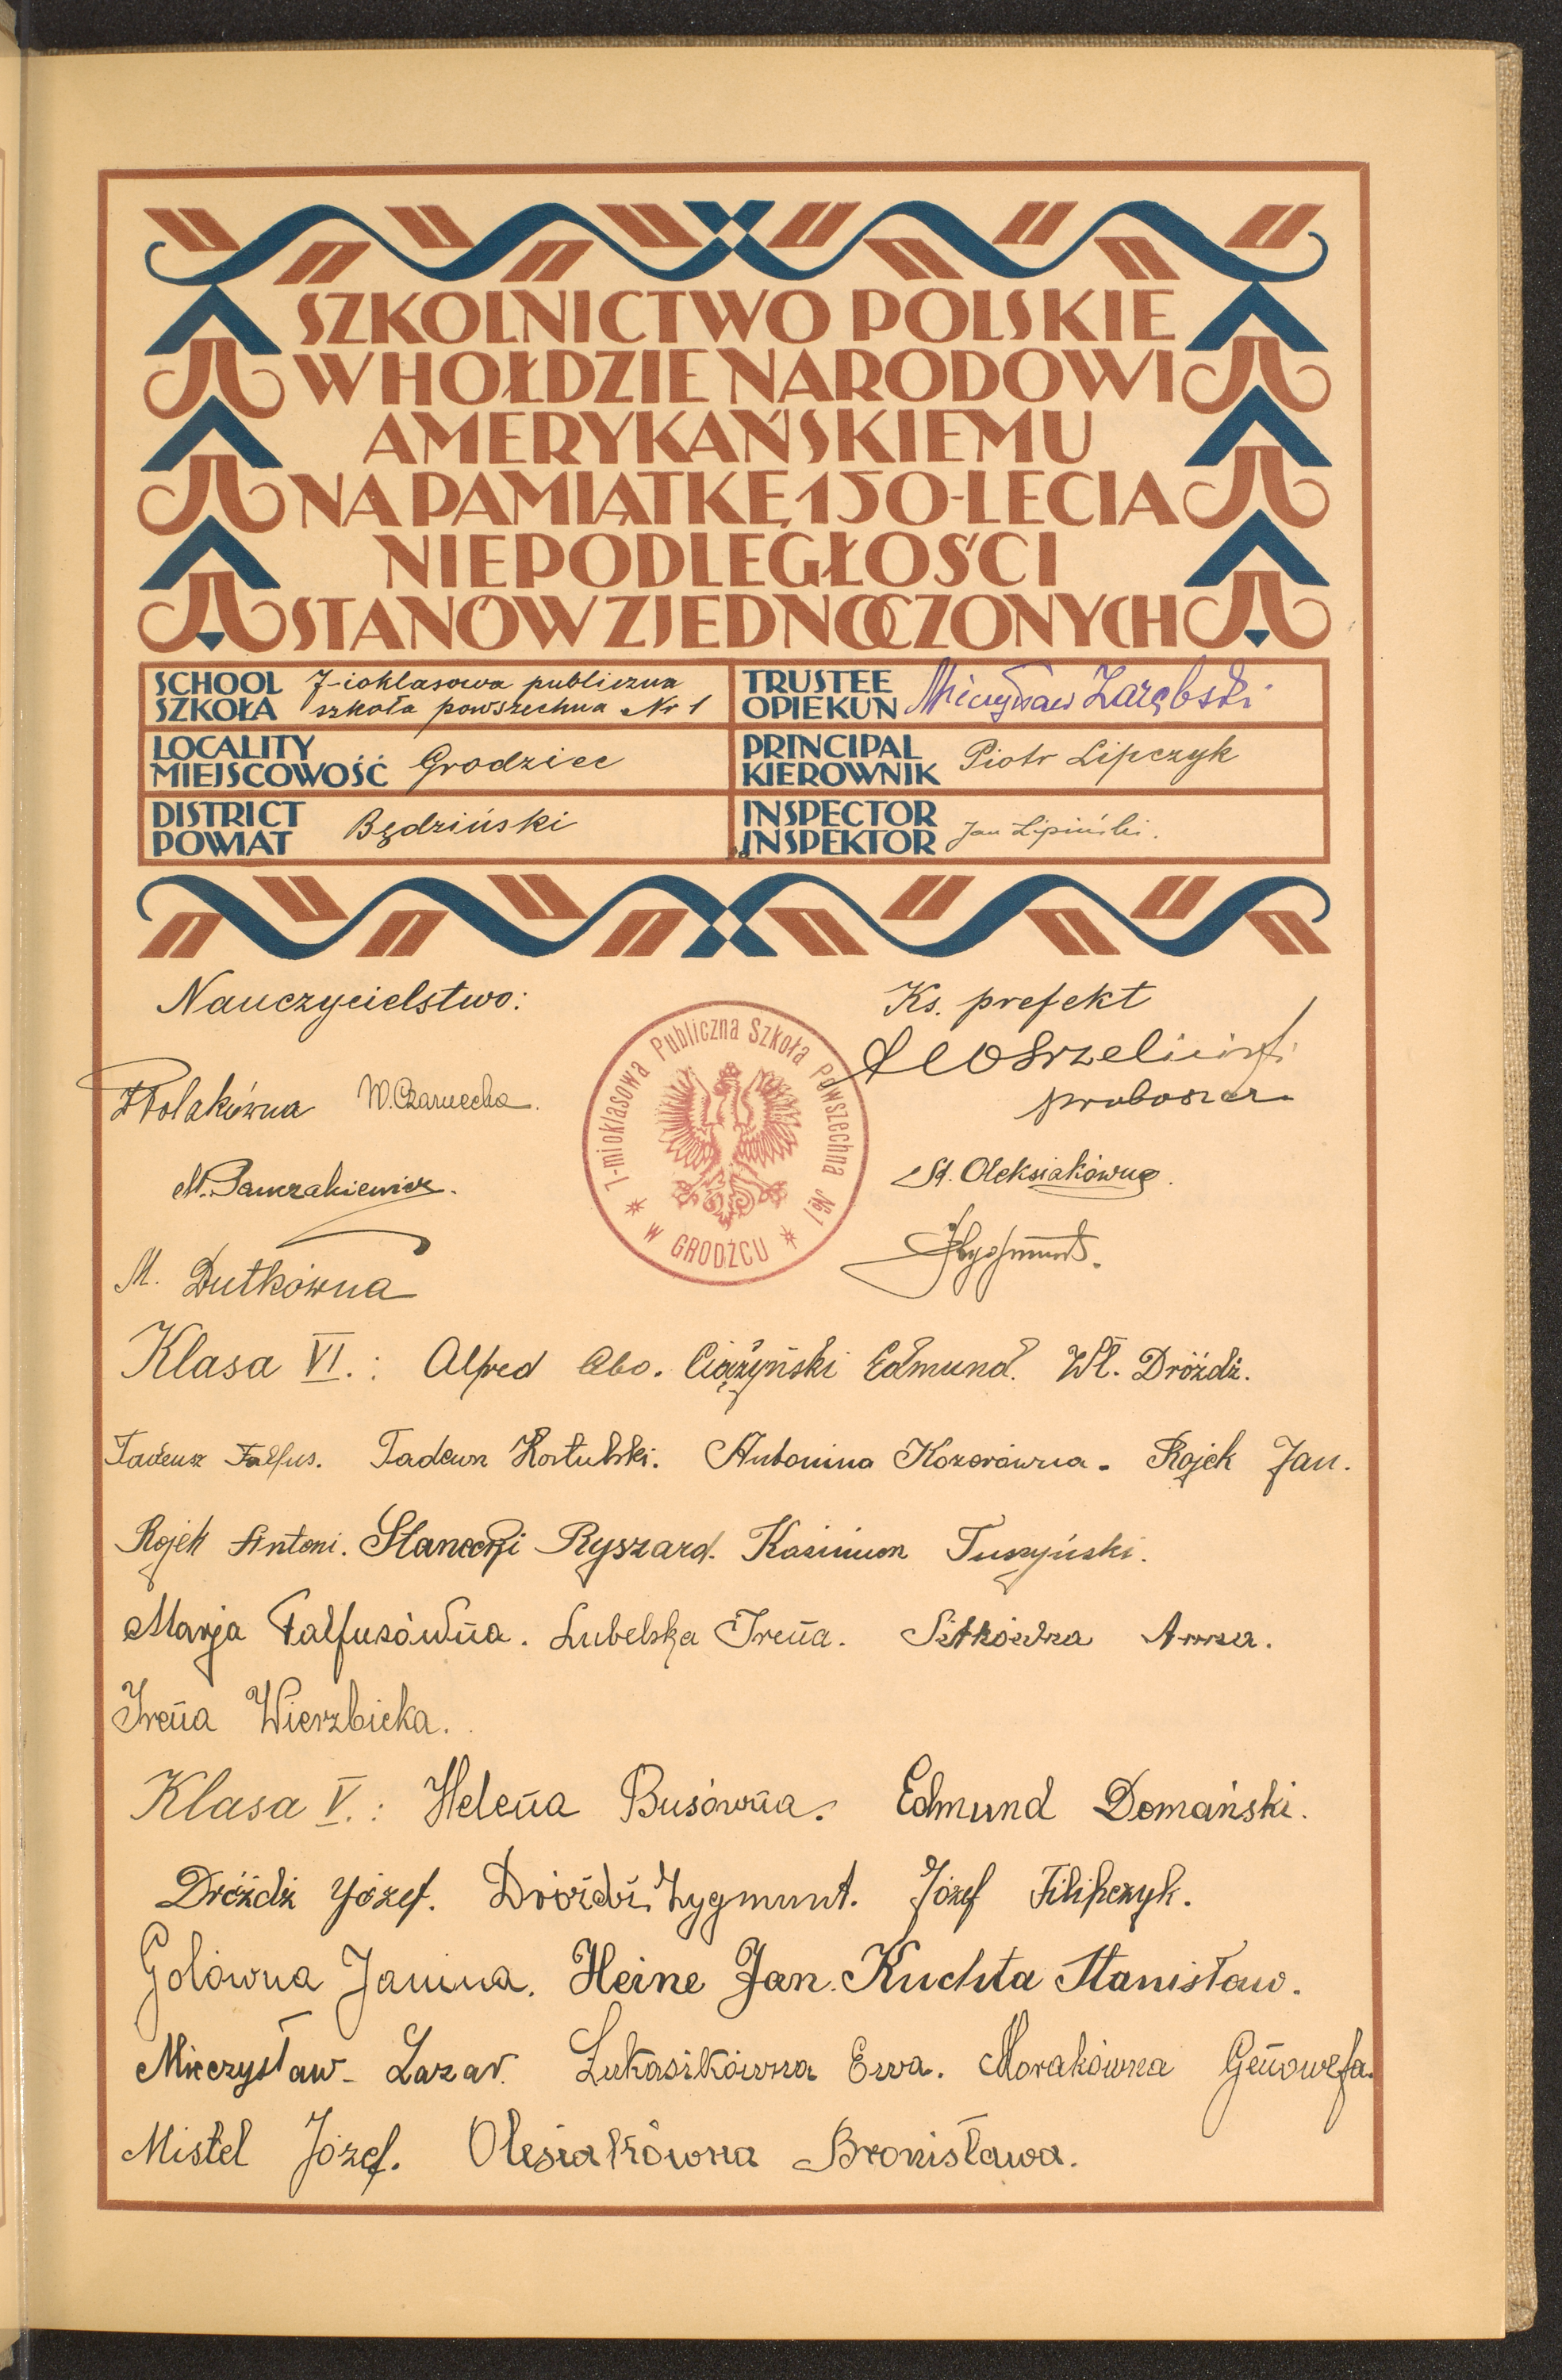 SZKOLNICTWO POLSKIE
W HOŁDZIE NARODOWI
AMERYKAŃSKIEMU
NA PAMIĄTKĘ 150-LECIA
NIEPODLEGŁOŚCI
STANÓW ZJEDNOCZONYCH
SCHOOL
SZKOŁA
7-ioklasowa publiczna
szkoła powszechna Nr 1
TRUSTEE
OPIEKUN
Mieczysław Zarębski
LOCALITY
MIEJSCOWOŚĆ
Grodziec
PRINCIPAL
KIEROWNIK
Piotr Lipczyk
DISTRICT
POWIAT
Będziński
INSPECTOR
INSPEKTOR
Jan Lipiński.
Nauczycielstwo:
Ks. prefekt
proboszcz
Polakówna
W. Czarnecka.
7-mioklasowa Publiczna Szkoła Powszechna №1
W GRODŹCU
St. Oleksiakówna.
M.
Zygmunt.
M. Dutkówna
Klasa VI.: Alfred Abo. Ciążyński Edmund. Wł. Dróżdż.
Tadeusz Falfus. Tadeusz Kostulski. Antonina Kozorówna. Rojek Jan.
Rojek Antoni. Stanecki Ryszard. Kazimierz Tuszyński.
Marja Falfusówna. Lubelska Irena. Sitkówna Anna.
Irena Wierzbicka.
Klasa V.: Helena Busówna. Edmund Domański.
Dróżdż Józef. Dróżdż Zygmunt. Józef Filipczyk.
Golówna Janina. Heine Jan. Kuchta Stanisław.
Mieczysław Lazar. Łukasikówna Ewa. Morakówna Genowefa.
Mistel Józef. Olesiakówna Bronisława.